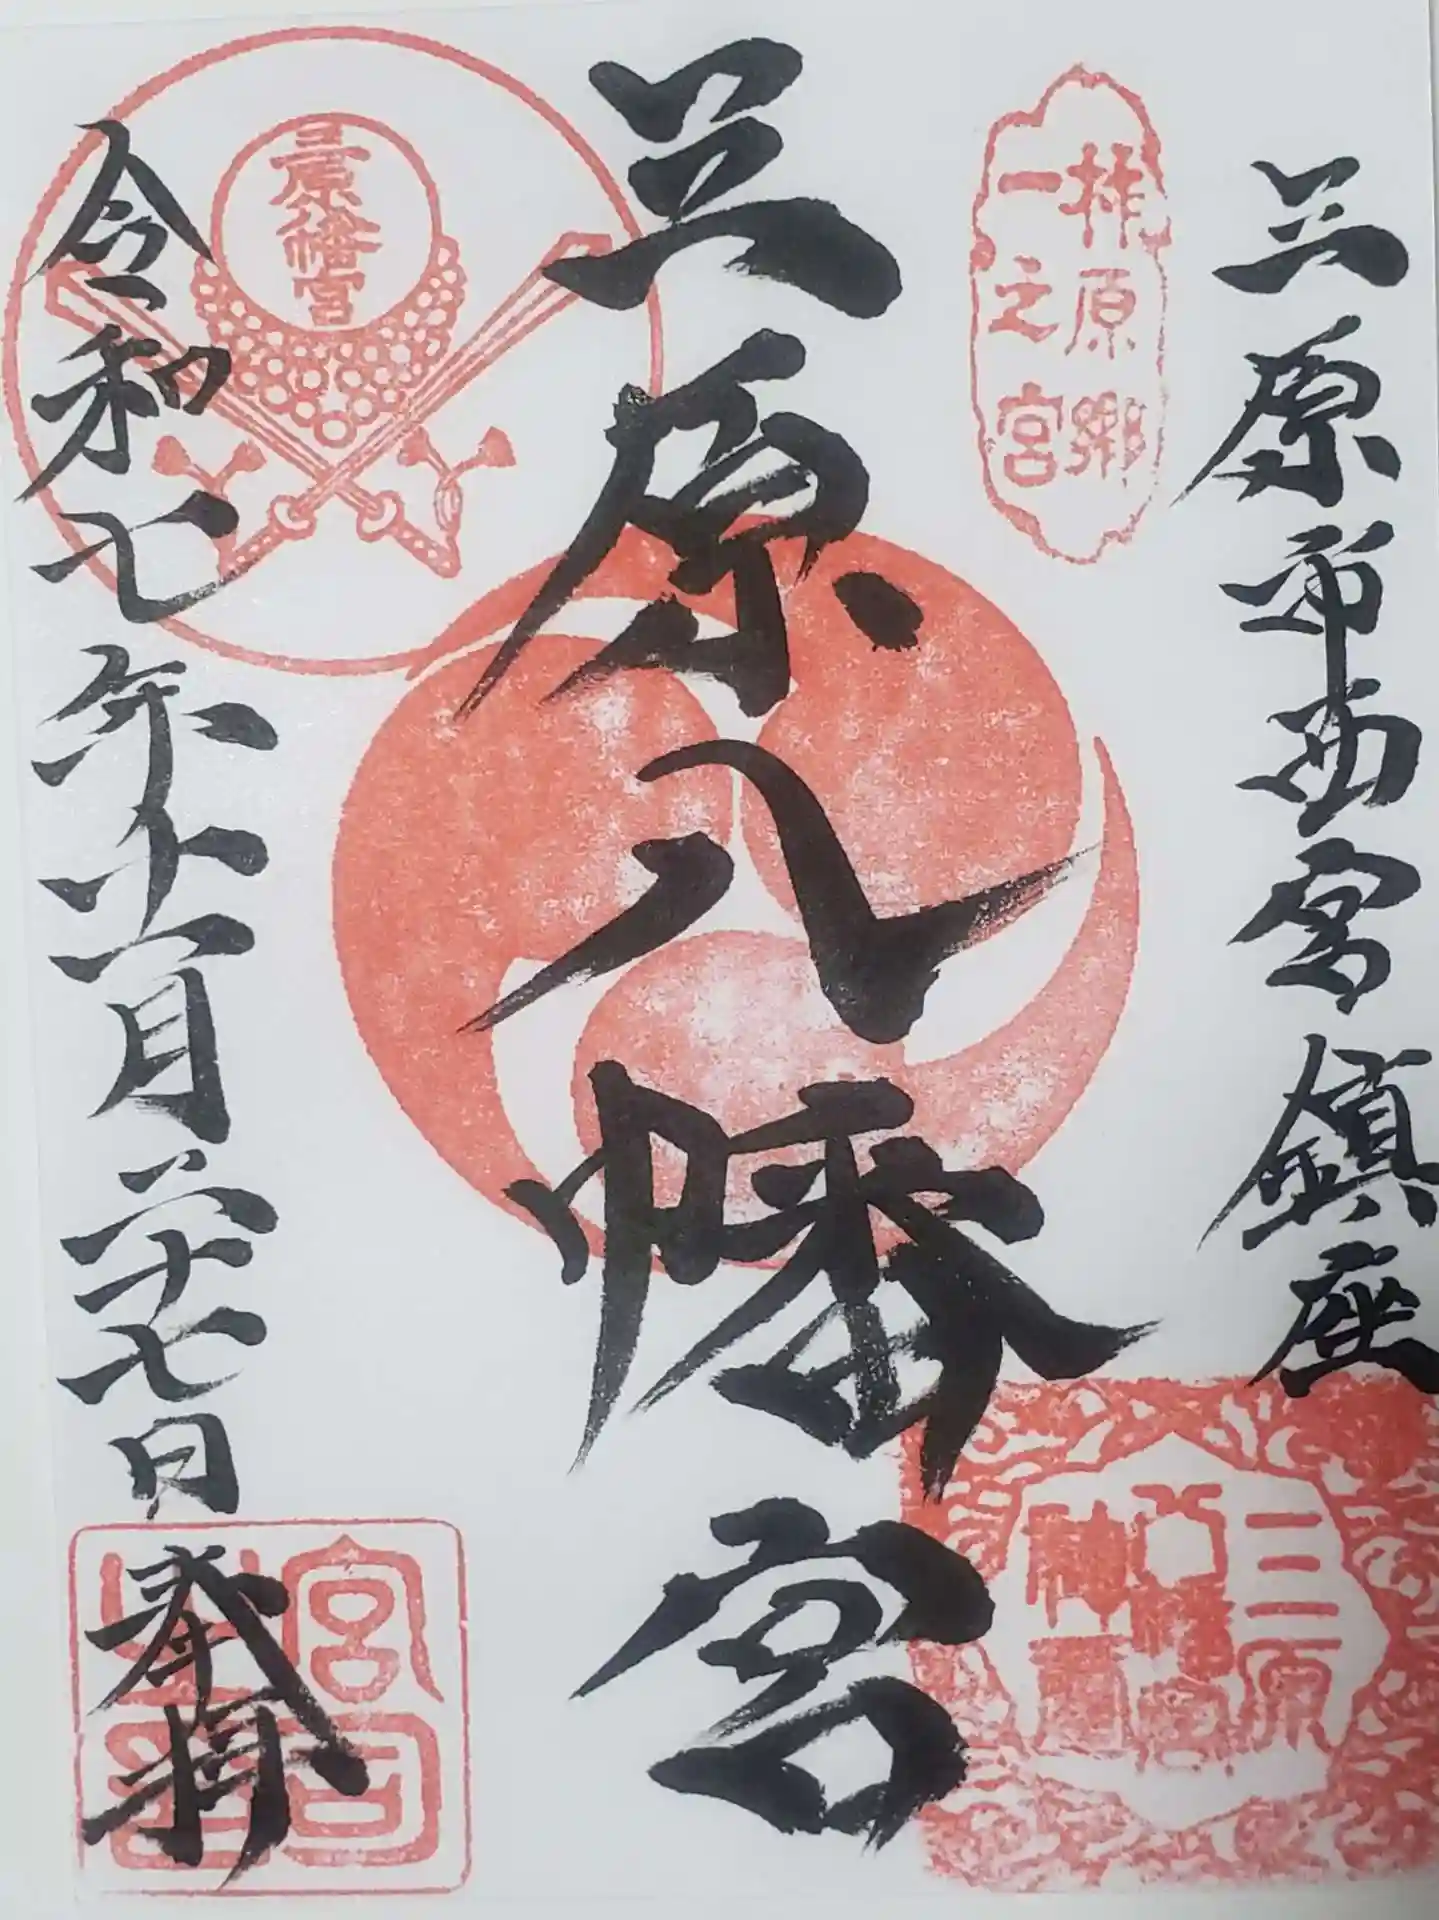 三原市西宮鎮座
柞原郷
一之宮
三原
八幡宮
神璽
三原八幡宮
三原八幡宮
令和七年十一月二十七日 奉拝
宮司
之印